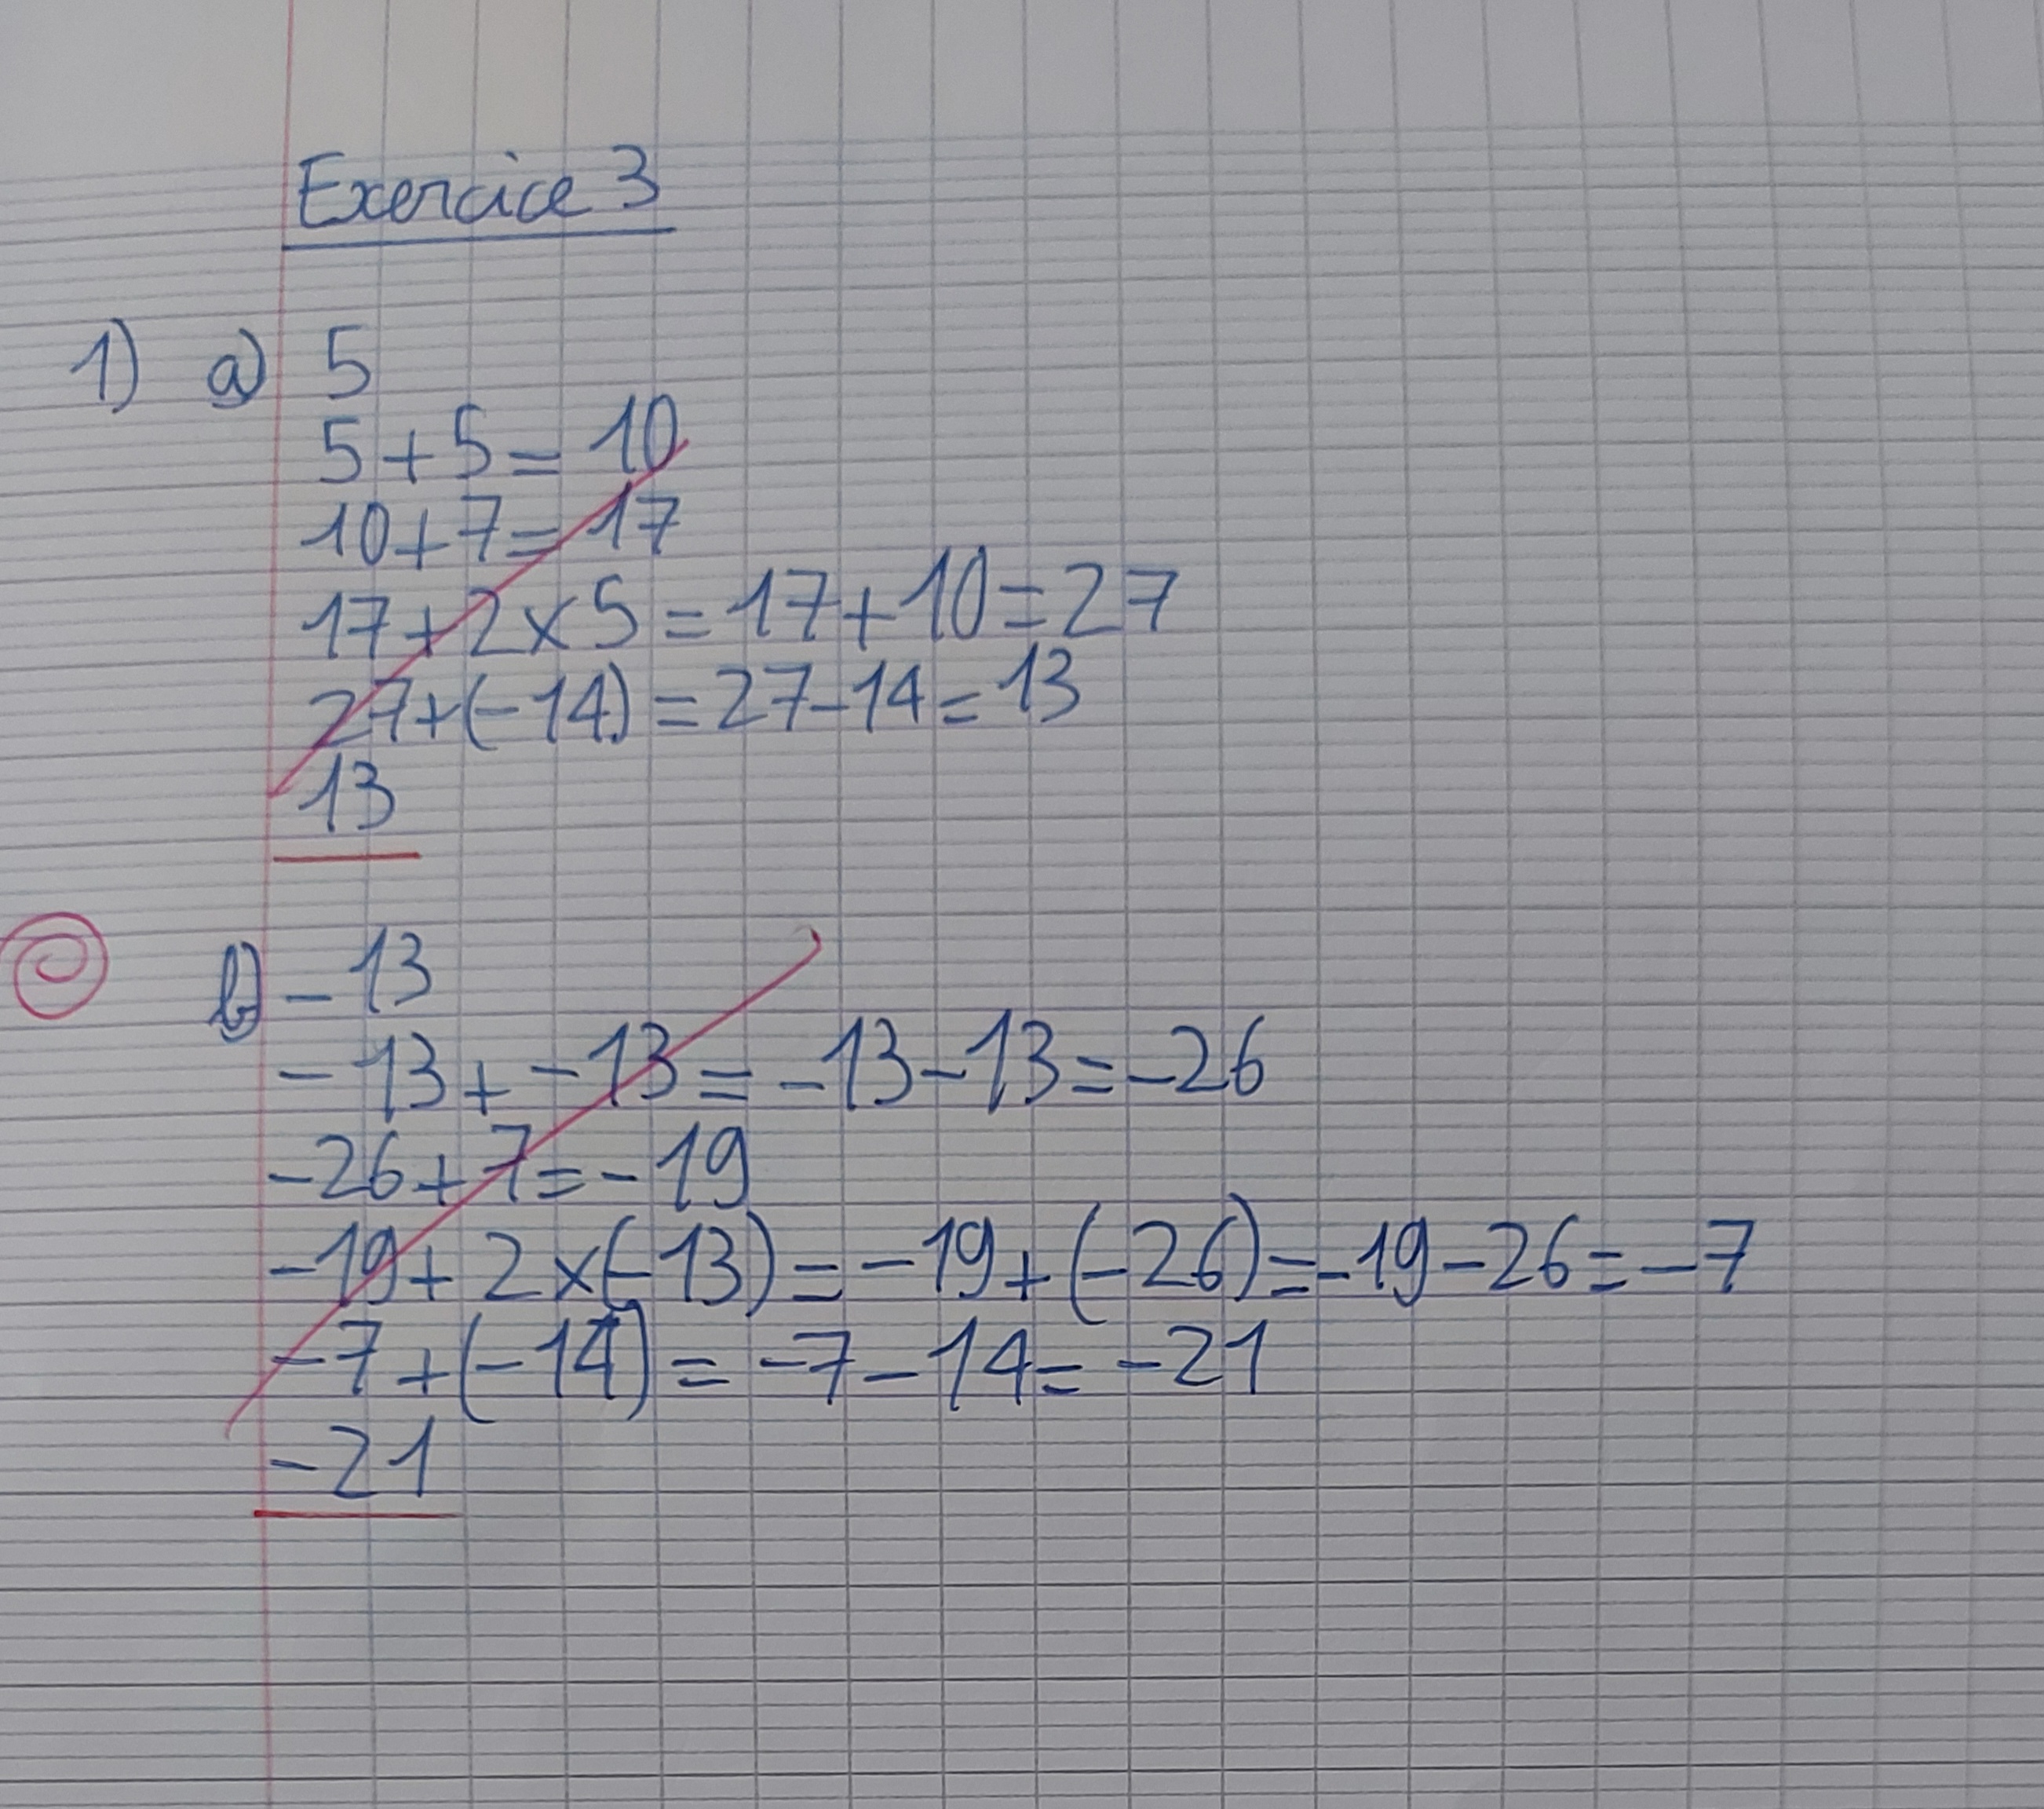 Exercice 3
1) a) 5
5+5= 10
10+7= 17
17+2×5 = 17+10=27
27+(-14) = 27-14= 13
13
b) -13
-13+ -13= -13-13=-26
-26+7=-19
-19+ 2×(-13)= -19+(-26)=-19-26=-7
-7+(-14) = -7-14= -21
-21